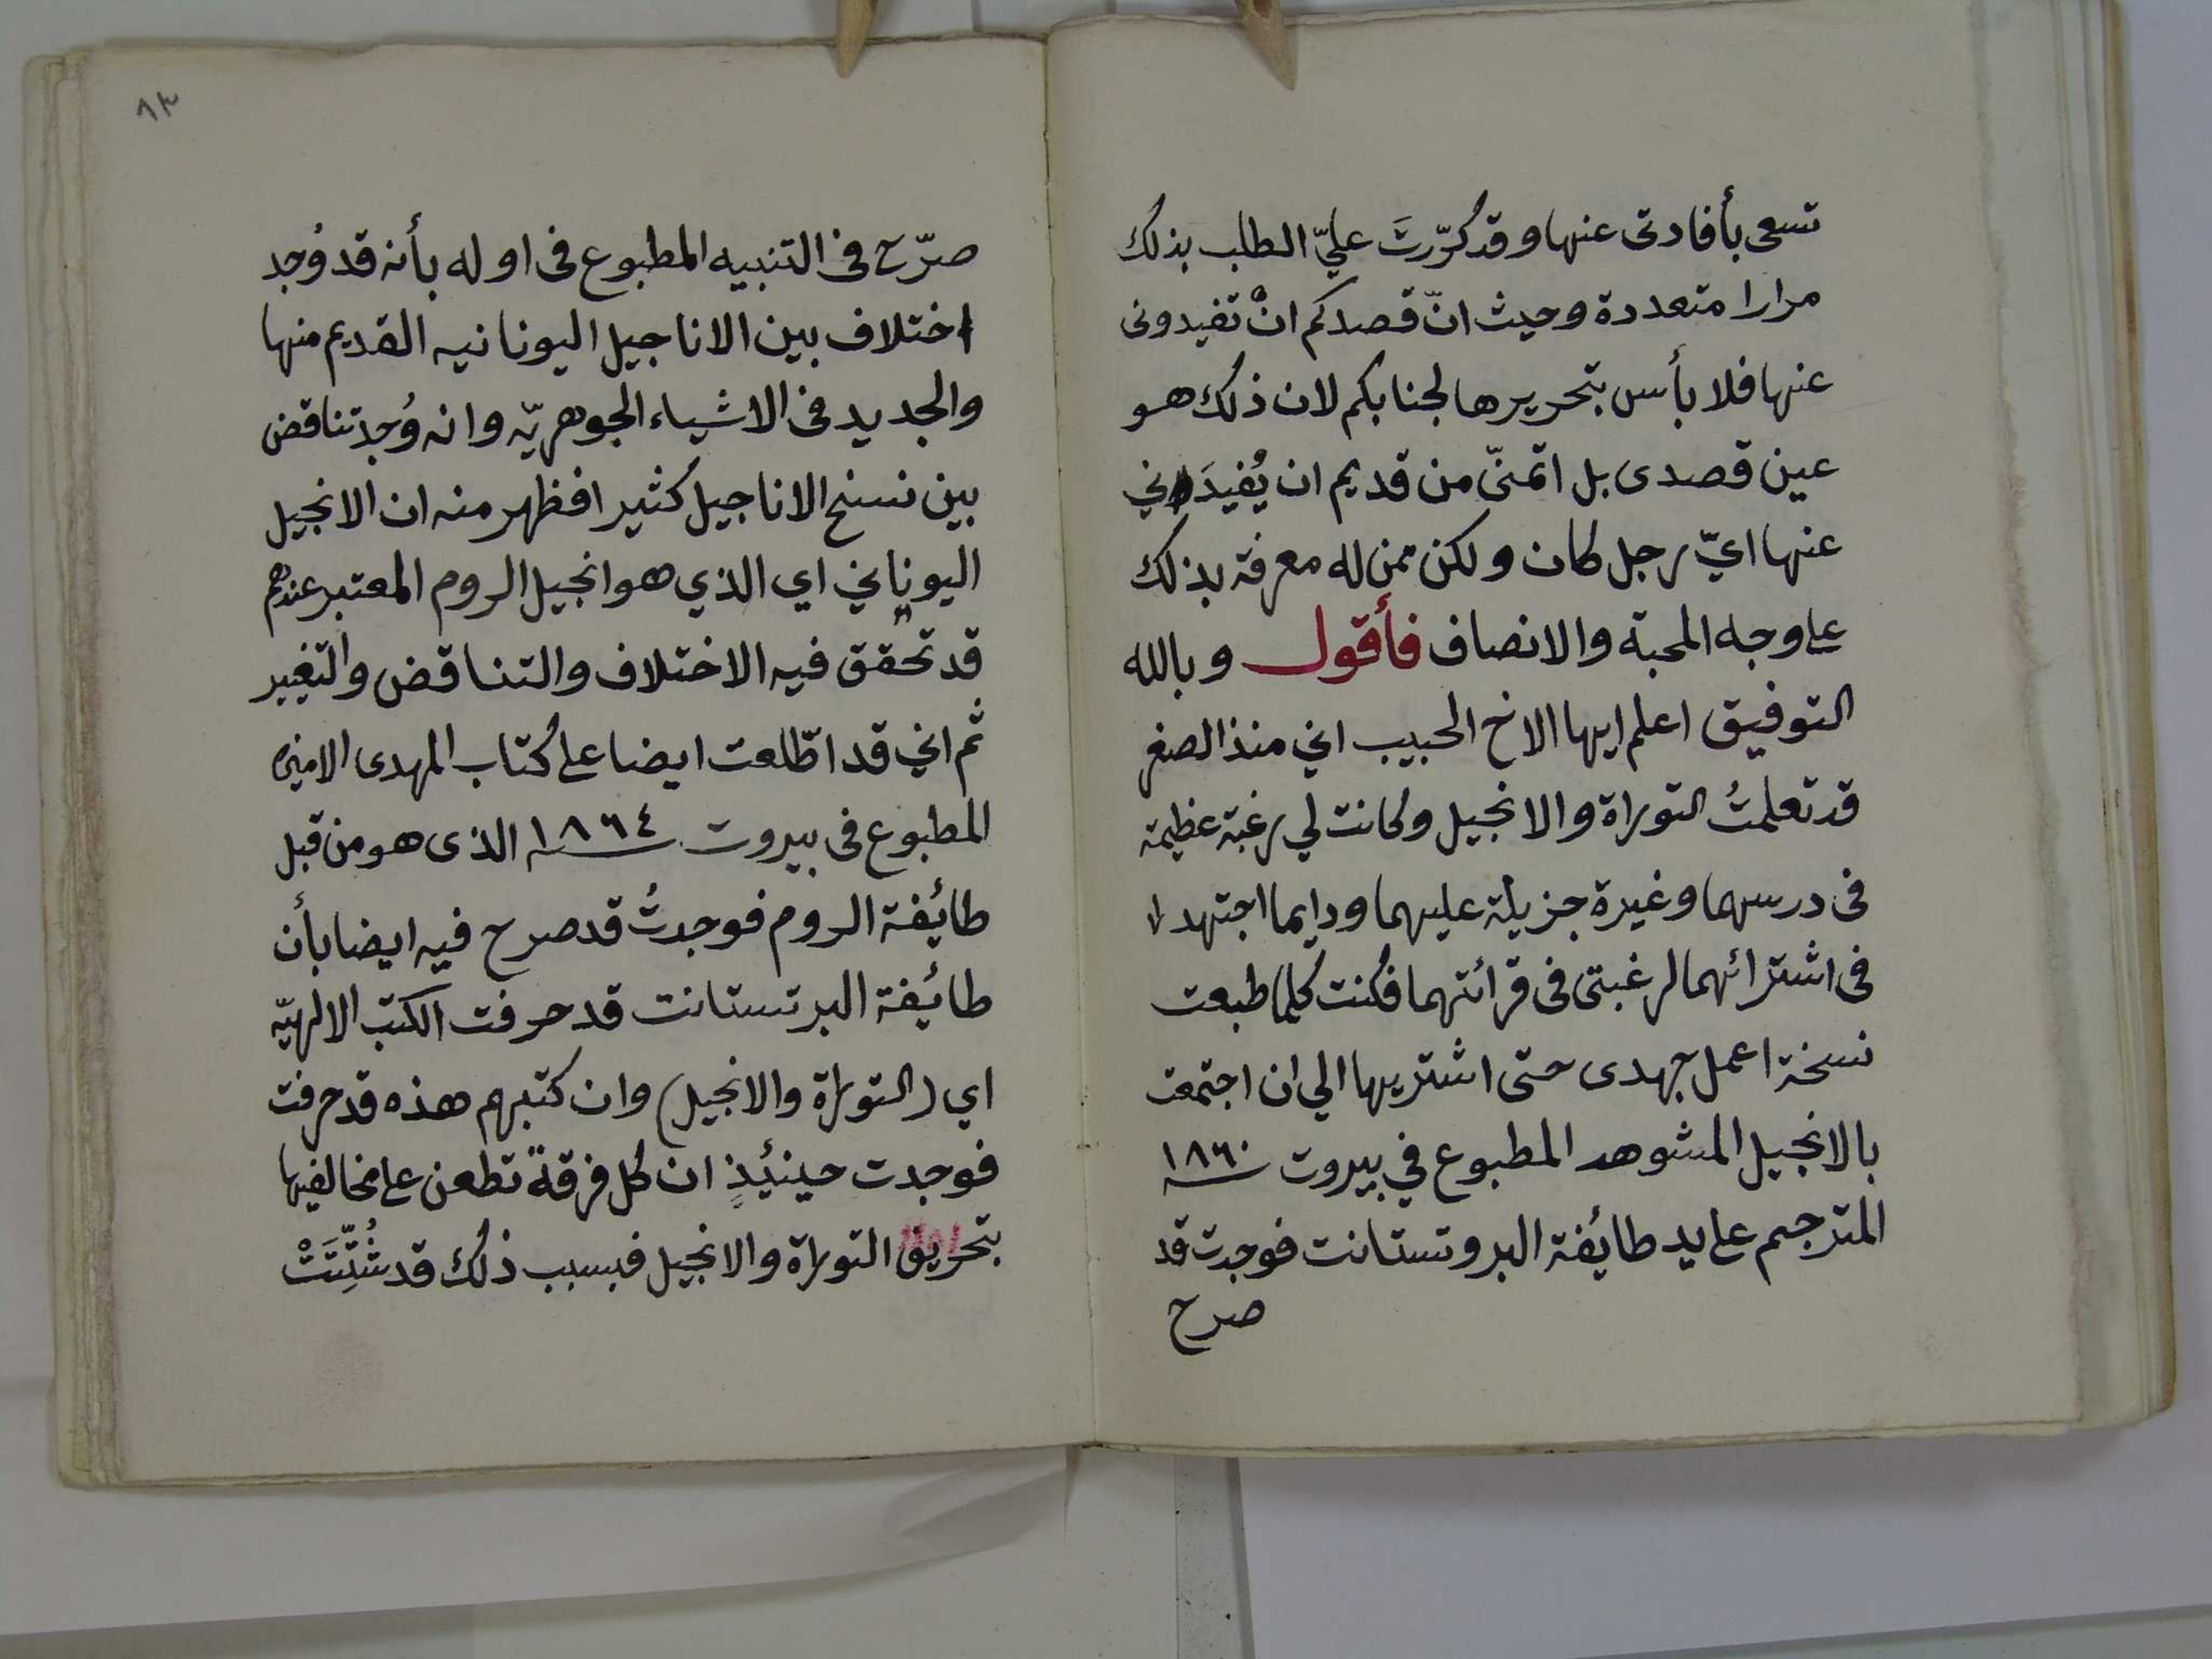 تسعى بأفادتى عنها وقد كرّرتَ عليّ الطلب بذلك
مرارا متعددة وحيث انّ قصدكم انْ تفيدونى
عنها فلا بأس بتحريرها لجنابكم لان ذلك هو
عين قصدى بل اتمنّى من قديم ان يُفيدَني
عنها ايّ رجل كان ولكن ممن له معرفة بذلك
على وجه المحبة والانصاف فأقول وبالله
التوفيق اعلم ايها الاخ الحبيب اني منذ الصغر
قد تعلمتُ التوراة والانجيل وكانت لي رغبة عظيمة
فى درسهما وغيرة جزيلة عليهما ودايما اجتهد
فى اشترائهما لرغبتى فى قرائتهما فكنت كلما طبعت
نسخة اعمل جهدى حتى اشتريها الي ان اجتمعت
بالانجيل المشوهد المطبوع في بيروت سنة ١٨٦٠
المترجم على يد طايُفة البروتستانت فوجدت قد
صرح
١٣
صرّح فى التنبيه المطبوع فى اوله بأنه قد وُجد
اختلاف بين الاناجيل اليونانيه القديم منها
والجديد فى الاشياء الجوهريّه وانه وُجد تناقض
بين نسخ الاناجيل كثيرا فظهر منه ان الانجيل
اليوناني اي الذي هو انجيل الروم المعتبر عندهم
قد تحقق فيه الاختلاف والتناقض والتغيير
ثم اني قد اطّلعت ايضا على كتاب المهدى الامين
المطبوع فى بيروت سنة ١٨٦٤ الذى هو من قبل
طائيفة الروم فوجدتُ قد صرح فيه ايضا بأن
طائيفة البرتستانت قد حرفت الكتب الالهيّه
اي (التوراة والانجيل) وان كتبهم هذه قد حرفت
فوجدت حينئيذٍ ان كل فرقةً تطعن على مخالفيها
بتحريف التوراة والانجيل فبسبب ذلك قد شُتِّتَتْ